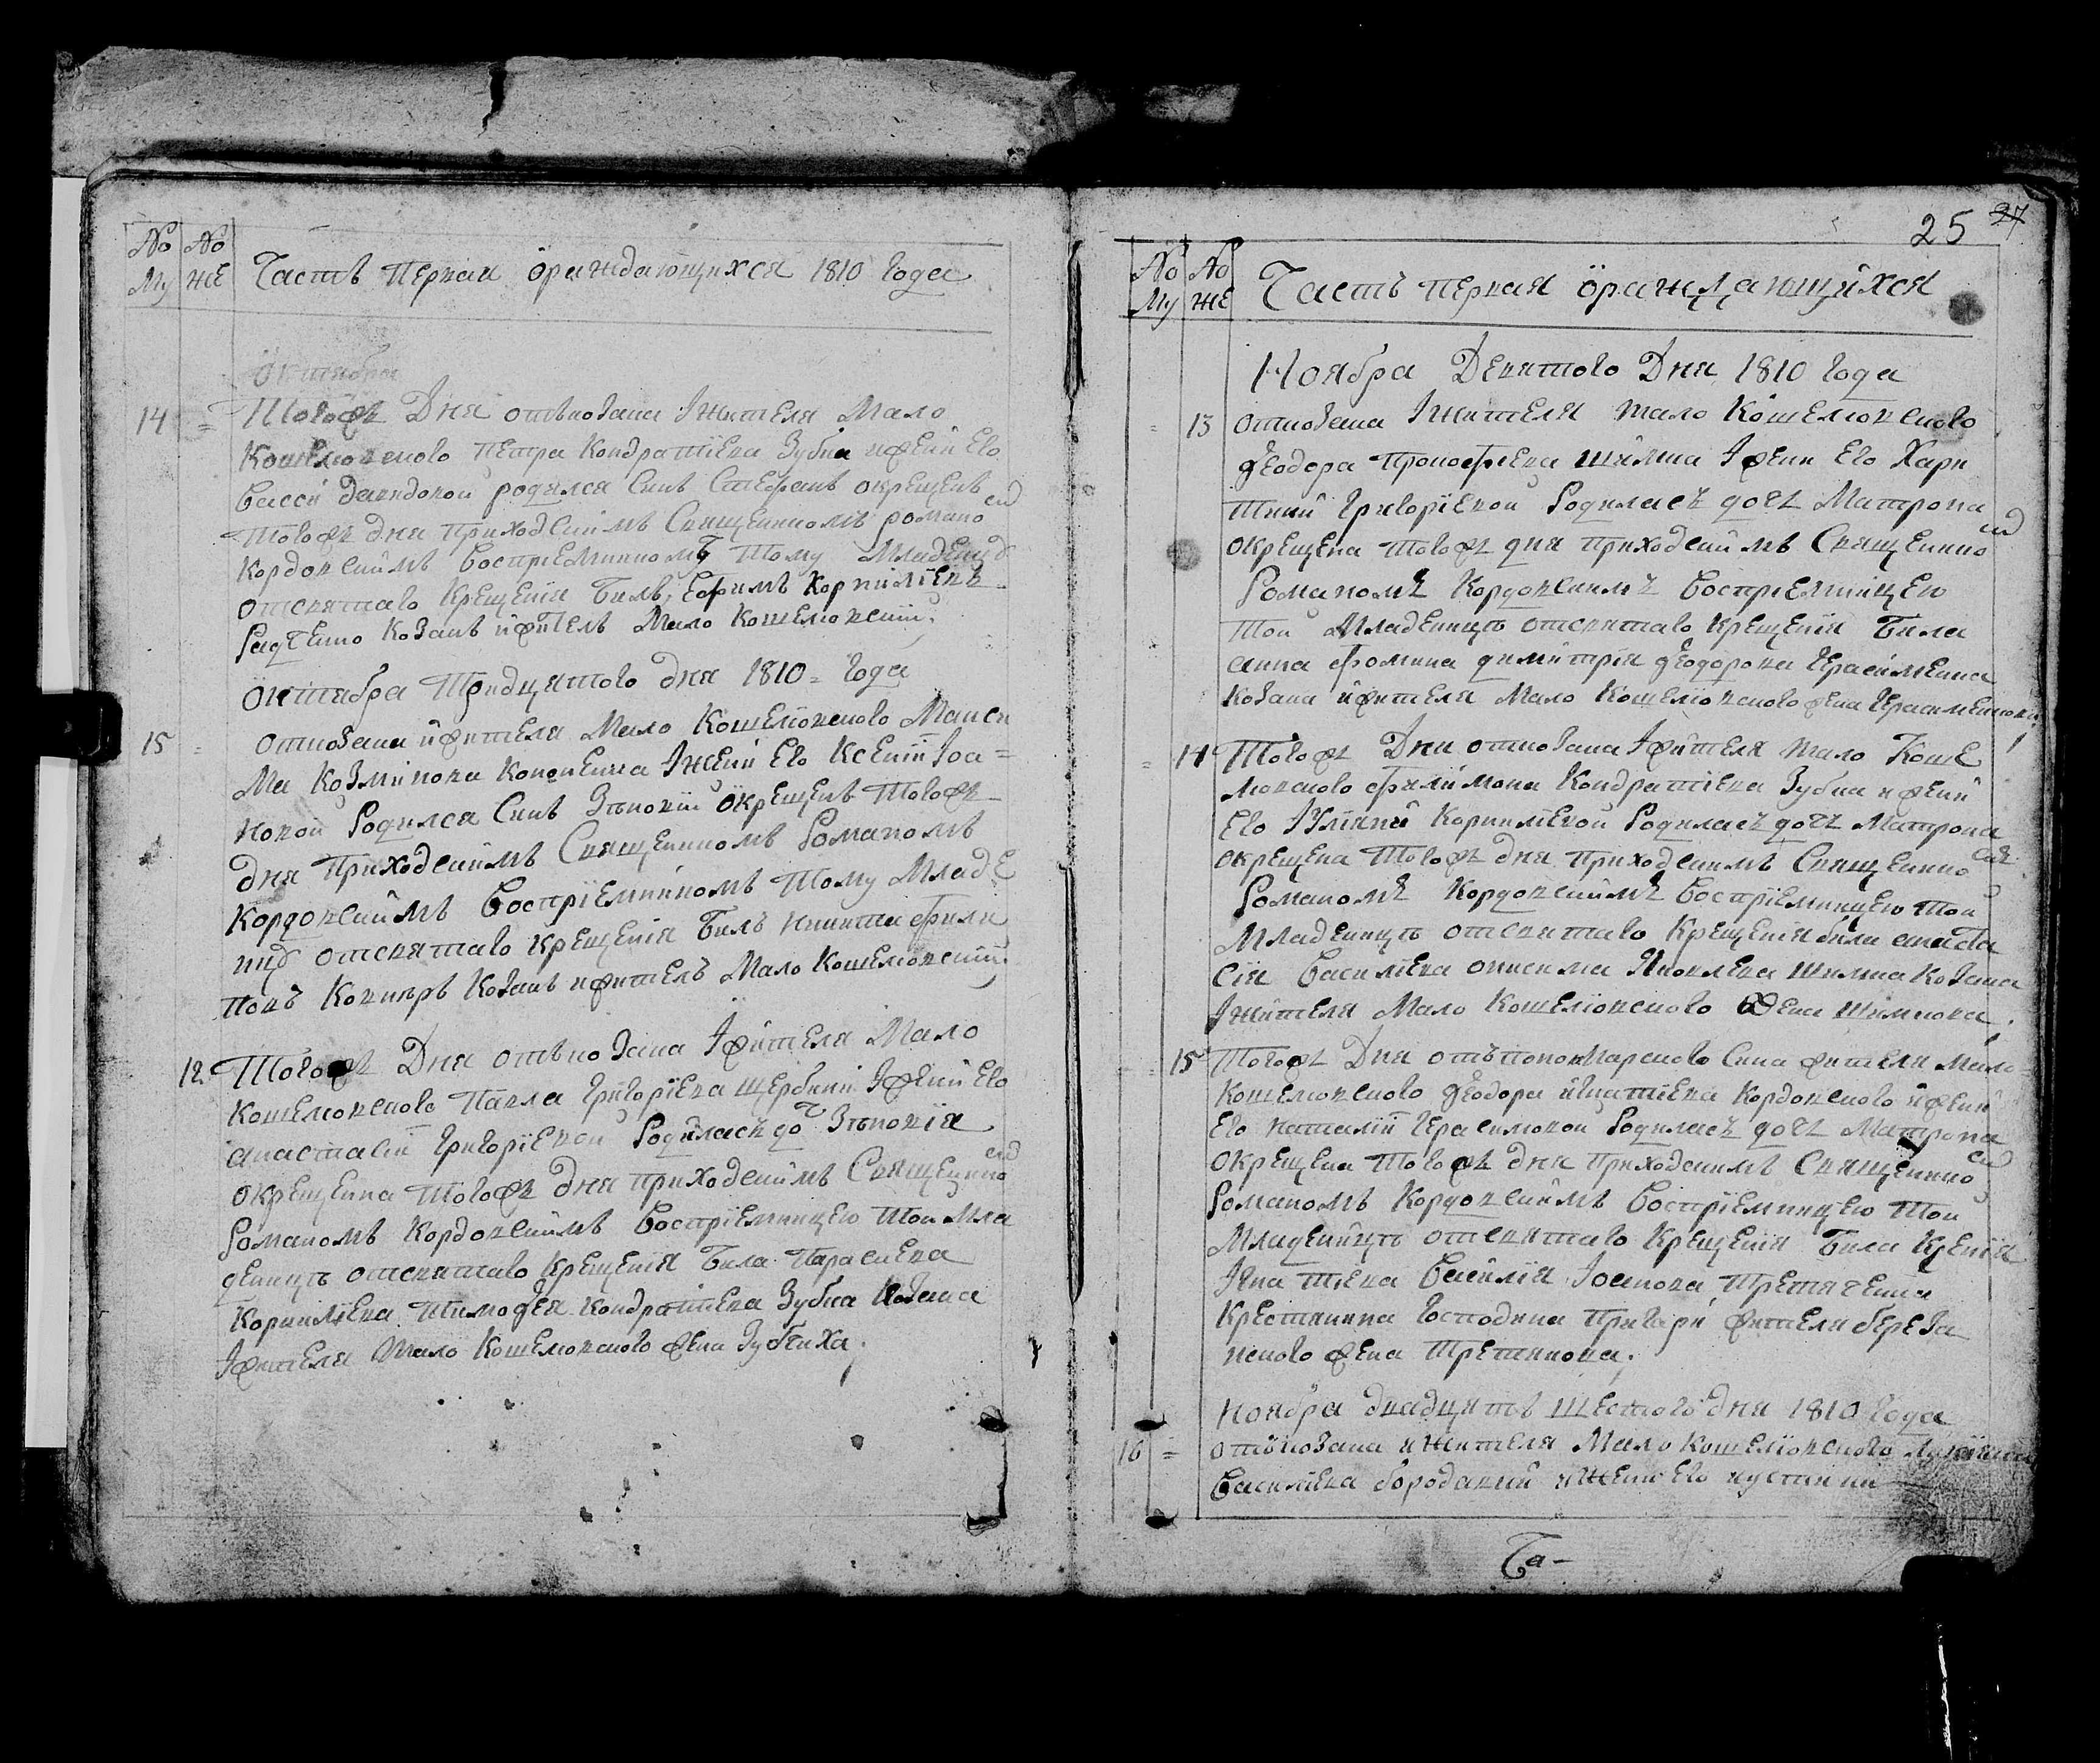 No No
Му же
Часть Первая ораждающихся 1810 Года
Октября
14 = Тогожъ Дня отъкозака Іжителя Мало
Кошелювского Петра Кондратіева Зубка ижени Его
Васси давидовой родился Синъ Стефанъ окрещенъ
Тогожъ дня приходскимъ Священникомъ романо
Кордовскимъ Воспріемникомъ Тому Младенцу
отсвятаго Крещенія Билъ Ефимъ Корниліевъ
Радченко Козакъ ижитель Мало Кошелювскій.
Октября Тридцятого дня 1810 = Года
15 = откозака ижителя Мало Кошелювского Макси
Ма Козминова Кононенка Іжени Его Ксеніи Іоа=
Новой Родился Синъ Зѣновій Окрещенъ Тогожъ
дня Приходскимъ Священникомъ Романомъ
Кордовскимъ Воспріемникомъ Тому Младе
нцу отсвятаго крещенія Билъ Никита Фили
повъ Ковнѣръ Козакъ ижитель Мало Кошелювскій.
12. Тогожъ Дня отъкозака Іжителя Мало
Кошелювского Павла Григоріева щербини Іжени Его
анастасіи Григоріевой Родиласъ до Зѣновія
окрещенна Тогожъ дня приходскимъ Священно
Романомъ Кордовскимъ Воспріемницею Той Мла
деницъ отсвятаго Крещенія Била Параскева
Корниліева Тимофея Кондратіева Зубка Козака
Іжителя Мало Кошелювского жена Зубчиха.
25 27
No No
Му же
Часть первая ораждающихся
Ноября Девятого Дня 1810 Года
= 13 откозака Іжителя мало Кошелювского
Феодора Прокофіева шимка Іжени Его Хари
тини Григоріевой Родиласъ дочъ Матрона
окрещена Тогожъ дня приходскимъ Священно
Романомъ Кордовскимъ Воспріемницею
Той Младеницъ отсвятаго Крещенія Била
анна Фомина димитрія Феодорова Герасименка
Козака ижителя Мало Кошелювского жена Герасименкова
= 14 Тогожъ Дня откозака Іжителя мало Коше
лювского Филимона Кондратіева Зубка ижени
Его Іуліяни Корниліевой Родиласъ дочъ Матрона
окрещена Тогожъ дня приходскимъ Священно
Романомъ Кордовскимъ Воспріемницею Той
Младеницъ отсвятаго Крещенія била анаста
сія Василіева онисима Яковлева шимка Козака
Іжителя Мало Кошелювского Жена Шимкова.
= 15 Тогожъ Дня отъпономарского Сина жителя Мало=
Кошелювского Феодора игнатіева Кордовского ижени
Его наталіи Герасимовой Родиласъ дочъ Матрона
окрещена Тогожъ дня приходскимъ Священно
Романомъ Кордовскимъ Воспріемницею Той
Младеницъ отсвятаго Крещенія Била
Ігнатіева Василія Іоанова Третяченка
Крестянина Господина жителя береза
нского жена Третякова.
Ноября двадцять шестого дня 1810 Года
16 = отъкозака ижителя Мало Кошелювского
Василіева бородавки ижени Его иустини
Та-